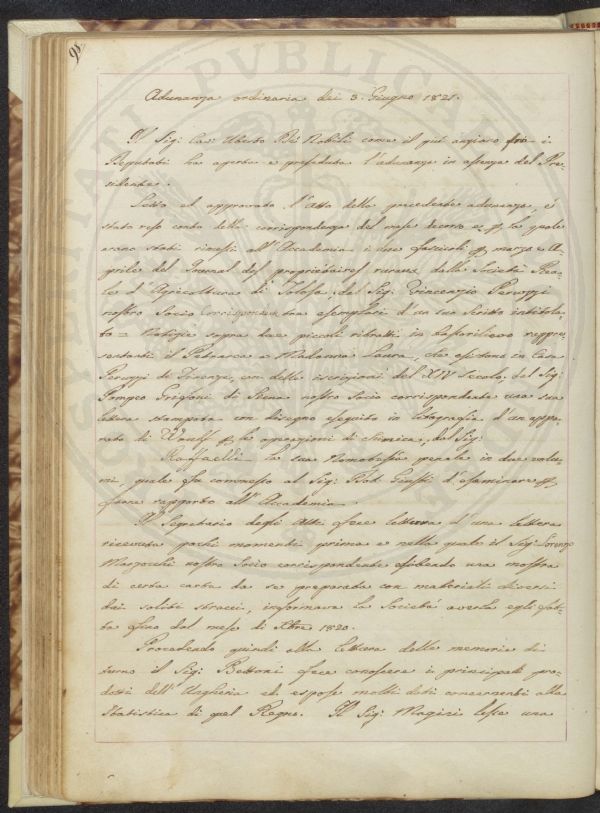 98
Adunanza ordinaria dei 3. Giugno 1821.
Il Sig: Cav: Uberto De' Nobili come il più anziano fra i
Deputati ha aperto e preseduto l'adunanza in assenza del Pre-
sidente.
Letto ed approvato l'Atto della precedente adunanza, è
stato reso conto della corrispondenza del mese decorso per la quale
erano stati rimessi all'Accademia i due fascicoli per marzo e A-
prile del Journal des propriétaires ruraux dalla Società Rea-
le d'Agricoltura di Tolosa, dal Sig: Vincenzio Peruzzi
nostro Socio Corrispondente tre esemplari d'un suo Scritto intitola-
to = Notizie sopra due piccoli ritratti in bassorilievo rappre-
sentanti il Petrarca e Madonna Laura, che esistono in Casa
Peruzzi di Firenze, con delle iscrizioni del XIV Secolo, dal Sig:
Pompeo Grifoni di Siena nostro Socio corrispondente una sua
lettera stampata con disegno eseguito in litografia d'un appa-
rato di Woulf per le operazioni di Chimica, dal Sig:
Raffaelli la sua Nomotesia penale in due volu-
mi, quale fu commesso al Sig: Dott: Giusti d'esaminare per
farne rapporto all'Accademia.
Il Segretario degli Atti fece lettura d'una lettera
ricevuta pochi momenti prima e nella quale il Sig: Lorenzo
Mazzocchi nostro Socio corrispondente esibendo una mostra
di certa carta da se preparata con materiali diversi
dai soliti stracci, informava la Società averla egli fat-
ta fino dal mese di Xbre 1820.
Procedendo quindi alla lettura delle memorie di
turno il Sig: Bettoni fece conoscere i principali pro-
dotti dell'Ungheria ed espose molti dati concernenti alla
Statistica di quel Regno. Il Sig: Magizi lesse una